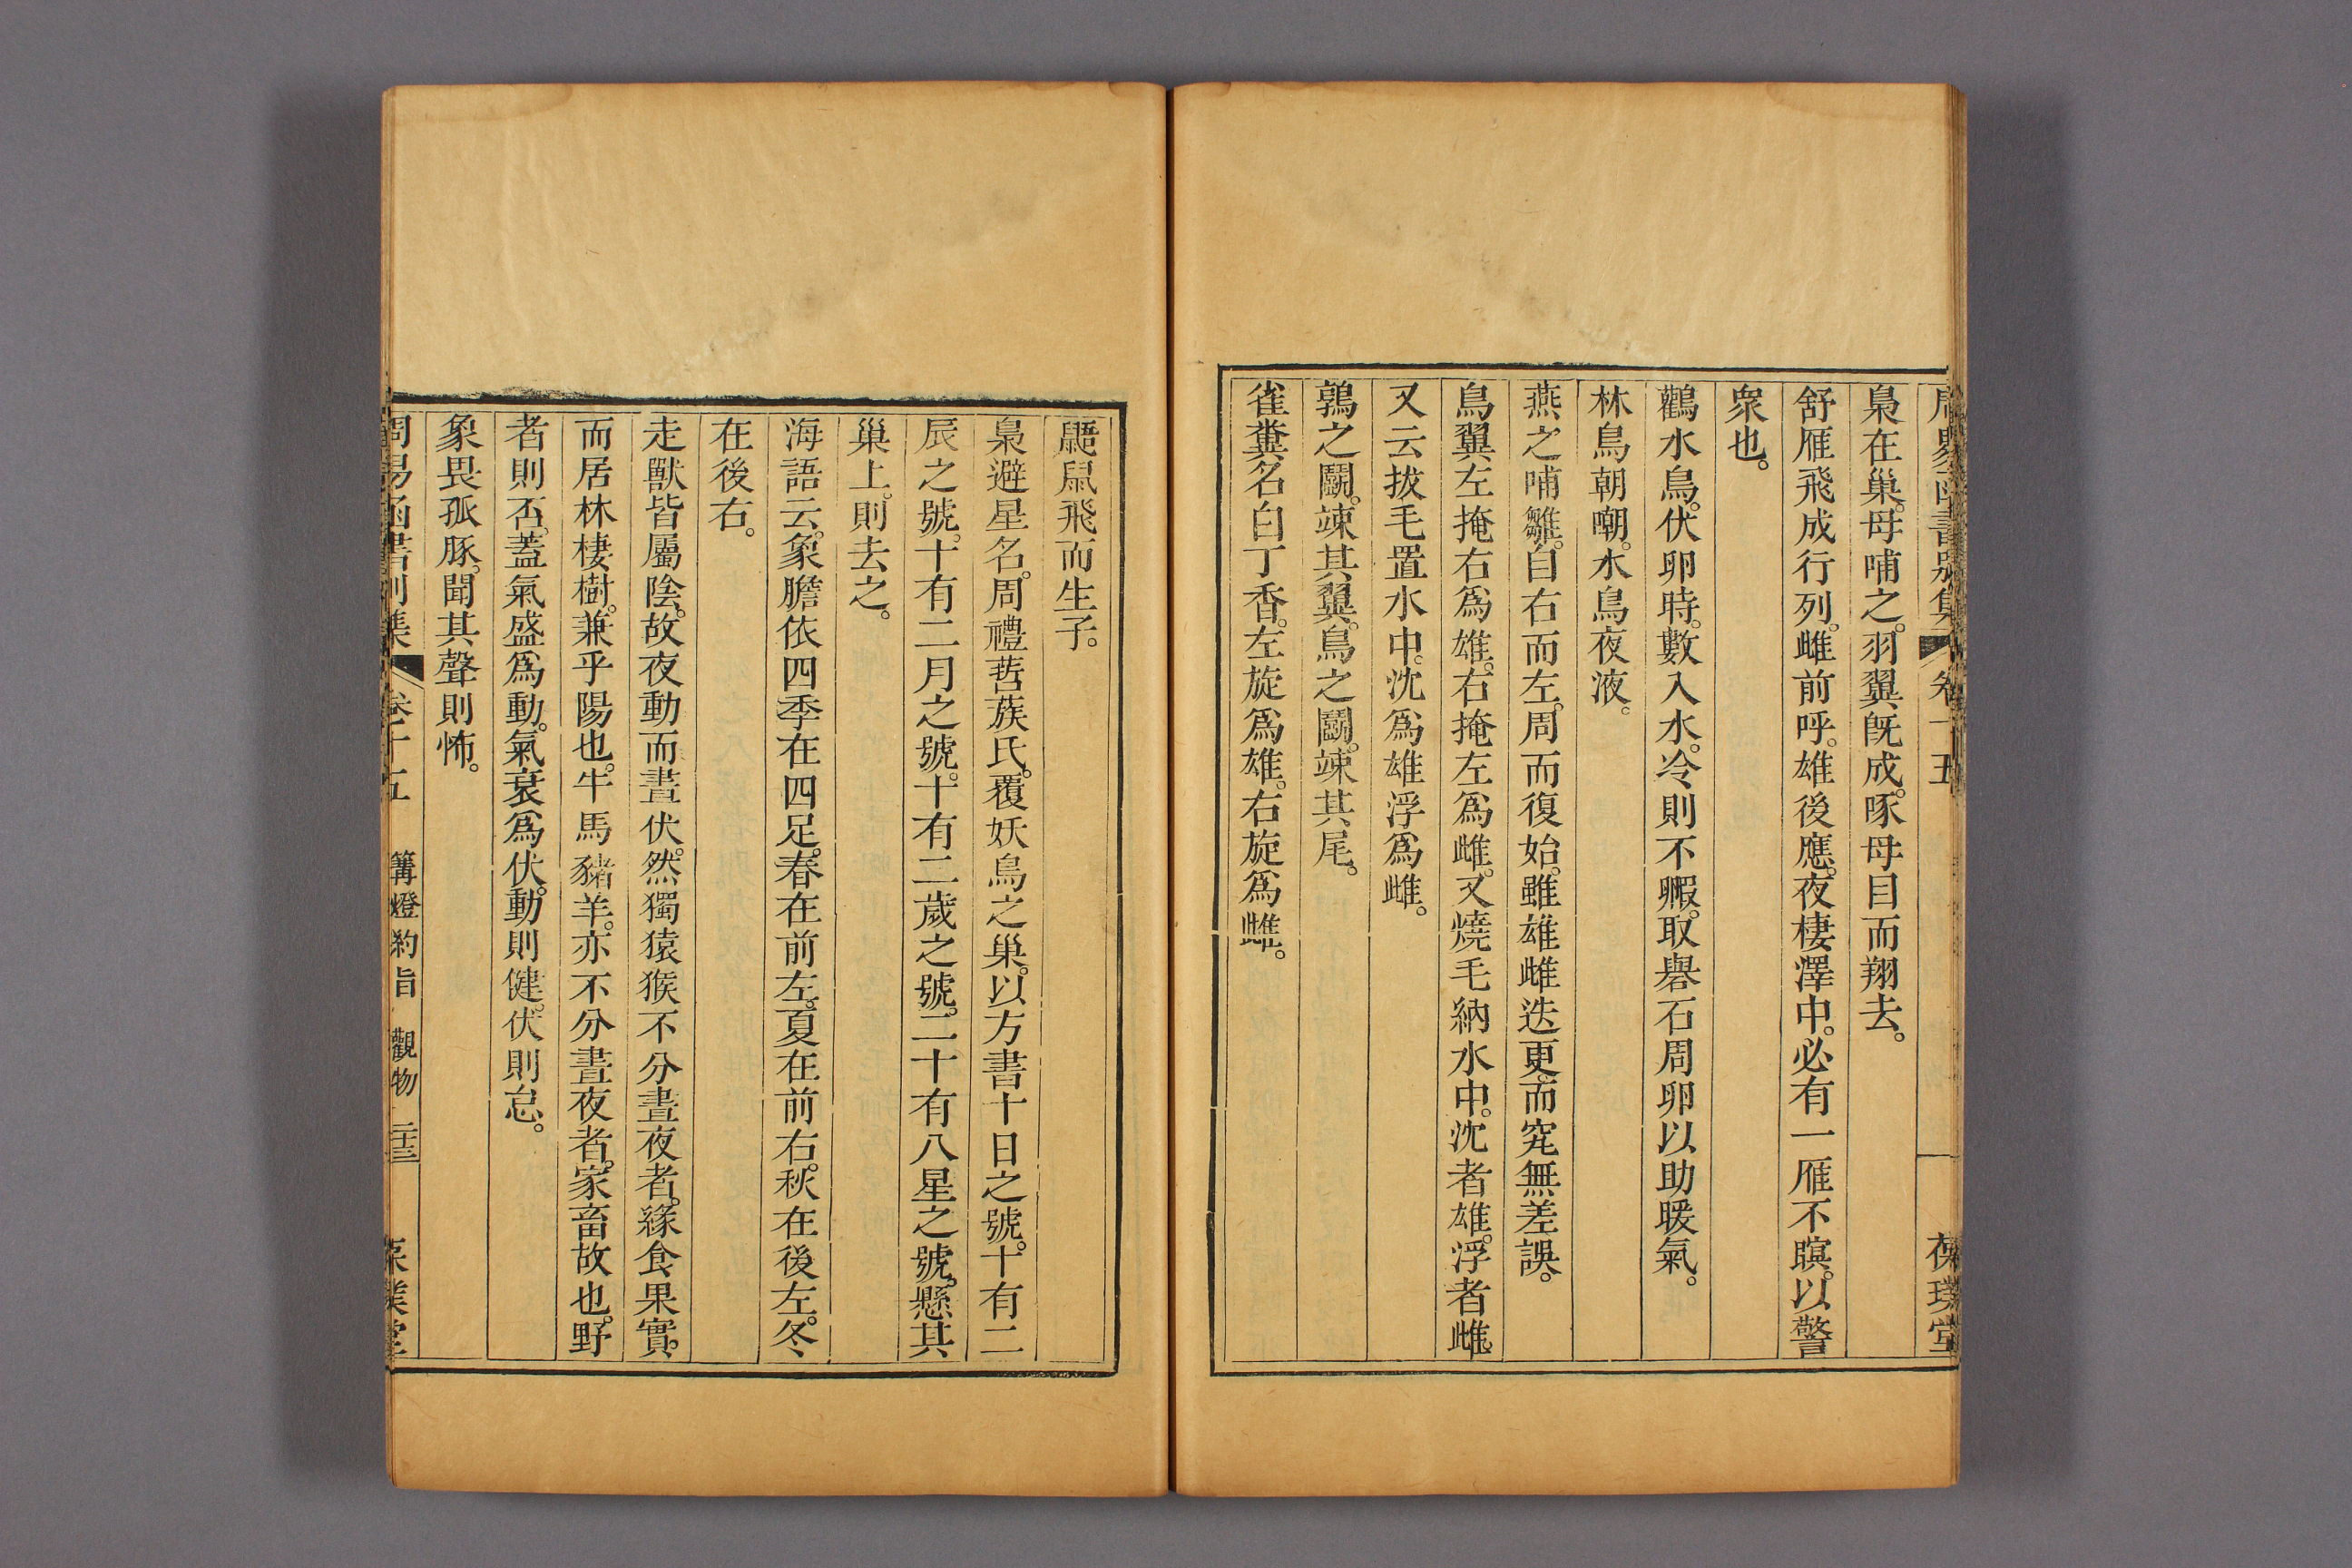 周易函書別集 卷十五 葆璞堂
梟在巢。母哺之。羽翼旣成。啄母目而翔去。
舒雁飛成行列。雌前呼。雄後應。夜棲澤中。必有一雁不瞑。以警
衆也。
鸛水鳥。伏卵時。數入水。冷則不毈。取礜石周卵以助暖氣。
林鳥朝嘲。水鳥夜液。
燕之哺雛。自右而左。周而復始。雖雄雌迭更。而究無差誤。
鳥翼左掩右爲雄。右掩左爲雌。又燒毛納水中。沈者雄。浮者雌。
又云拔毛置水中。沈爲雄浮爲雌。
鶉之鬭。竦其翼。鳥之鬭。竦其尾。
雀糞名白丁香。左旋爲雄。右旋爲雌。
鼯鼠飛而生子。
梟避星名。周禮硩蔟氏。覆妖鳥之巢。以方書十日之號。十有二
辰之號。十有二月之號。十有二歲之號。二十有八星之號。懸其
巢上。則去之。
海語云。象膽依四季在四足。春在前左。夏在前右。秋在後左。冬
在後右。
走獸皆屬陰。故夜動而晝伏。然獨猿猴不分晝夜者。緣食果實。
而居林棲樹。兼乎陽也。牛馬豬羊。亦不分晝夜者。家畜故也。野
者則否。蓋氣盛爲動。氣衰爲伏。動則健。伏則怠。
象畏孤豚。聞其聲則怖。
周易函書別集 卷十五 篝燈約旨 觀物 二十三 葆璞堂